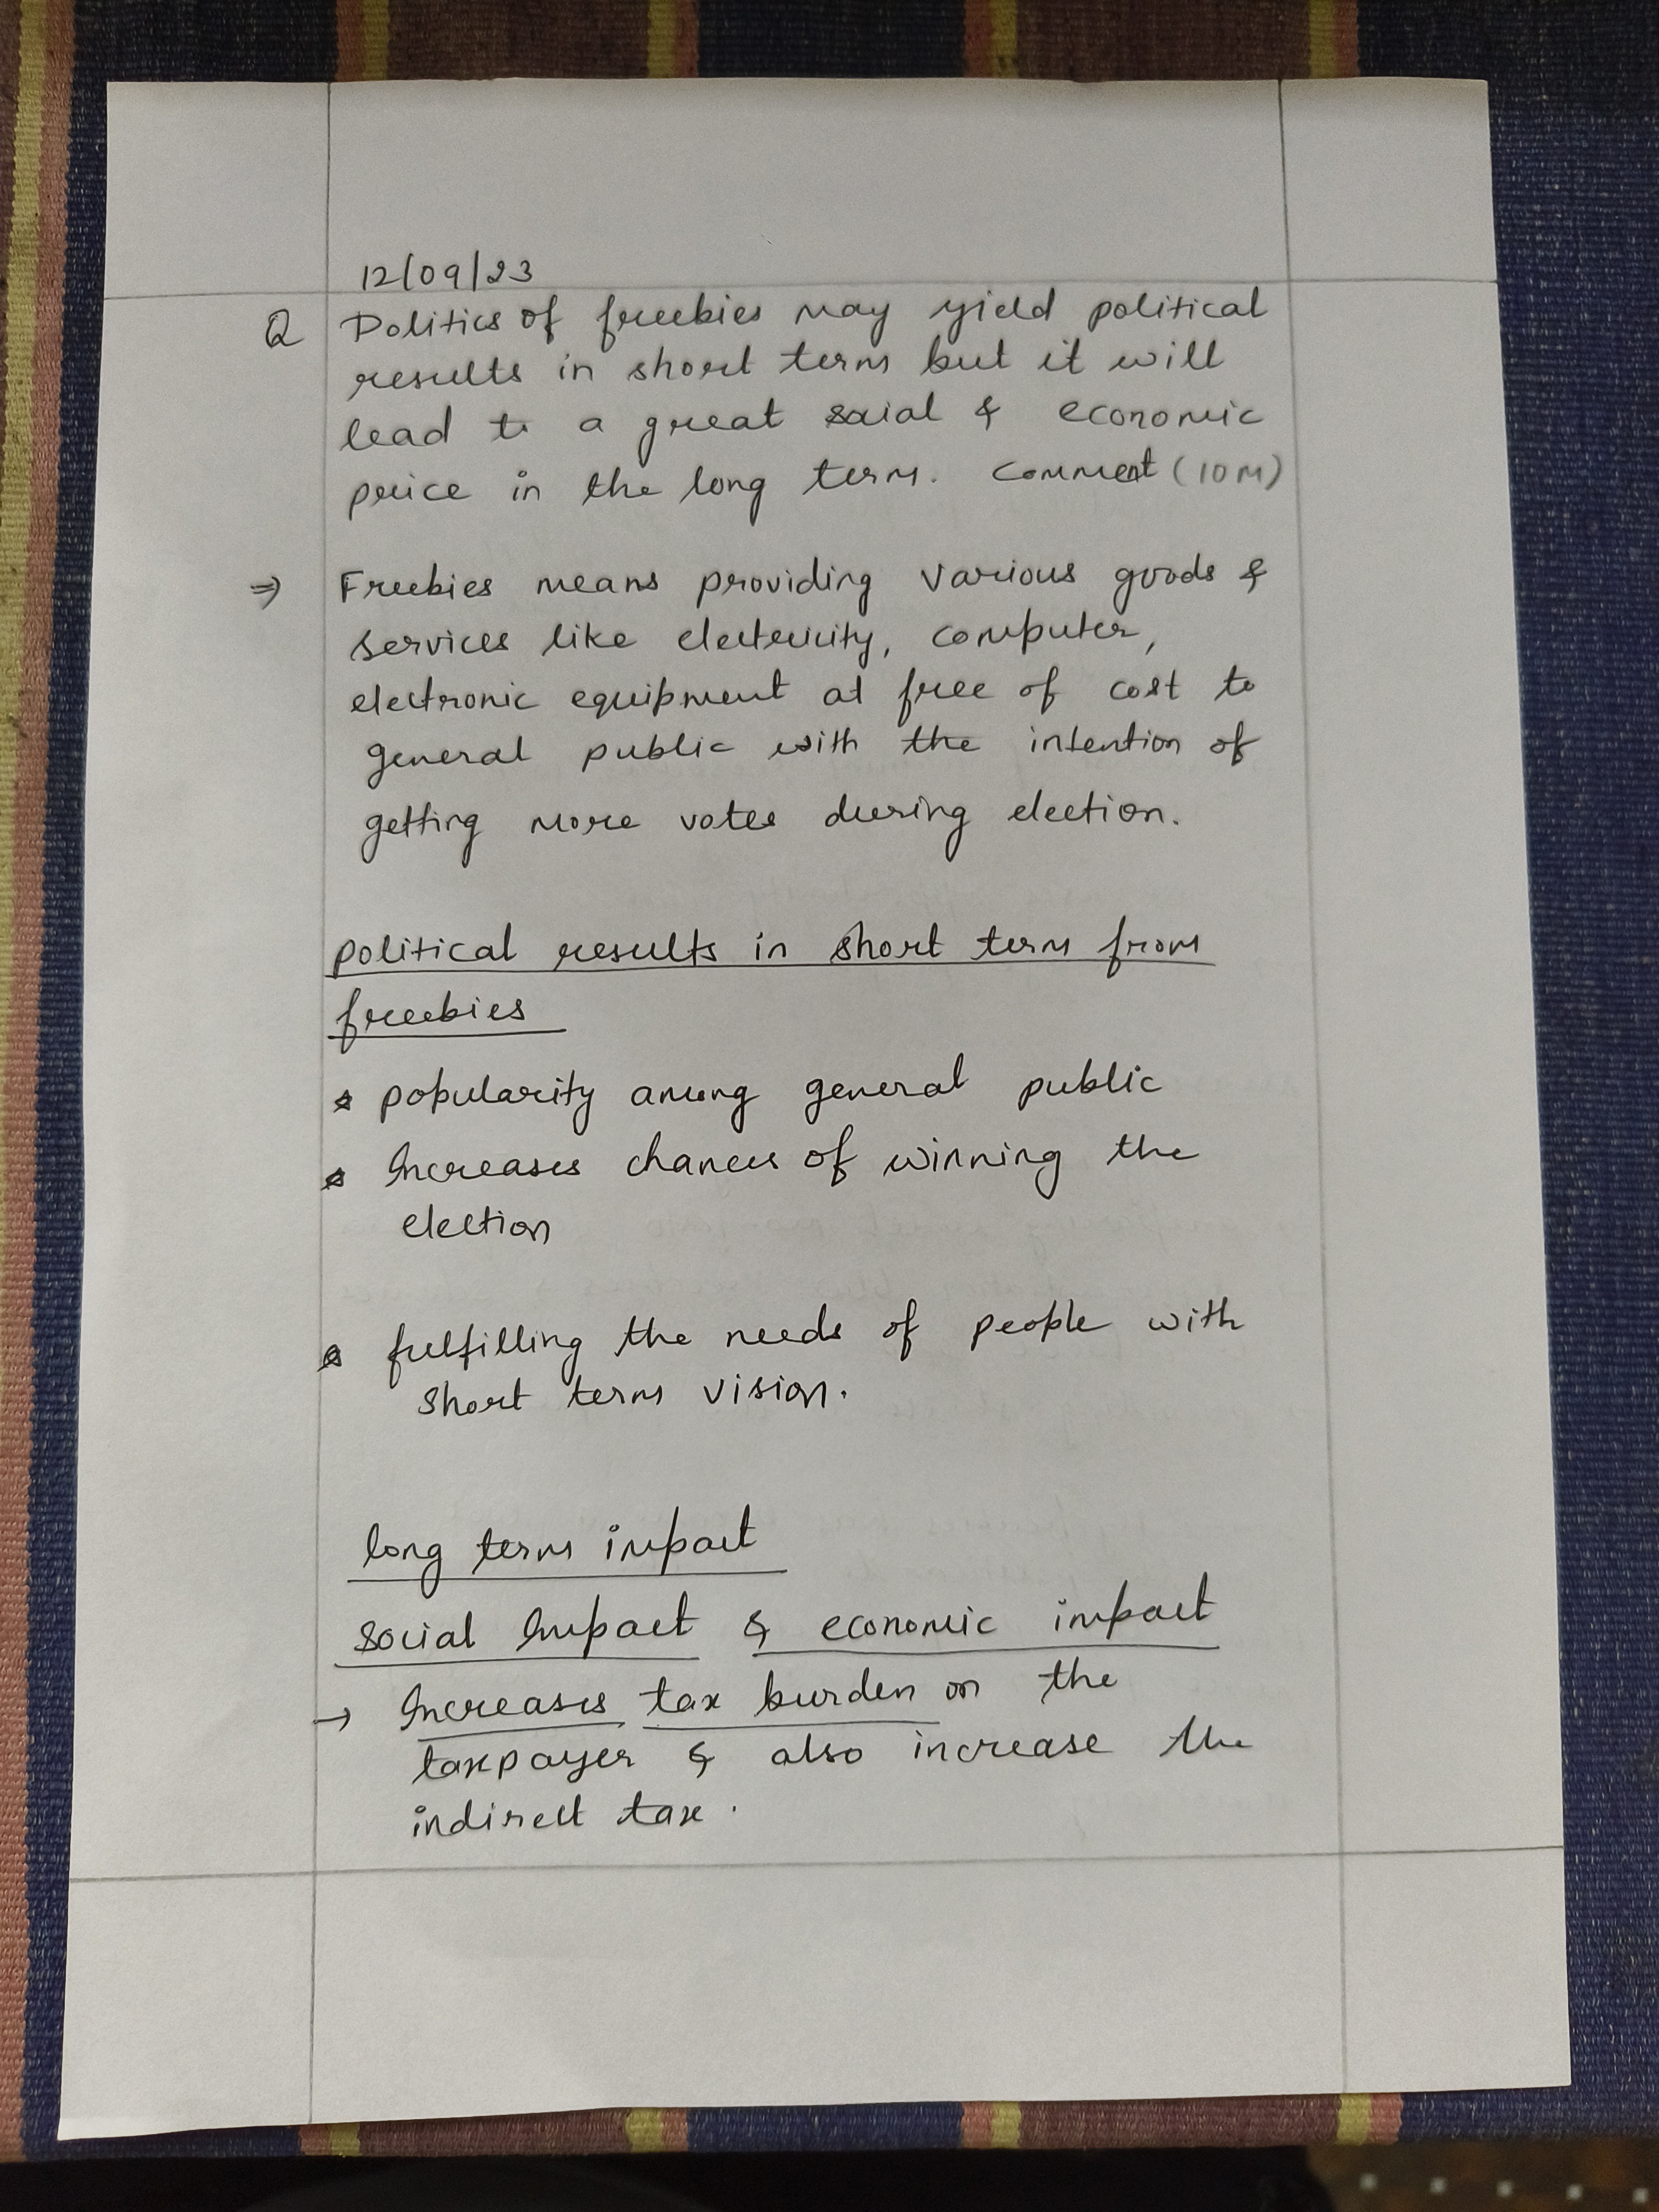 12/09/23
Q Politics of freebies may yield political
results in short term but it will
lead to a great social & economic
price in the long term. Comment (10M)
⇒ Freebies means providing various goods &
services like electricity, computer,
electronic equipment at free of cost to
general public with the intention of
getting more votes during election.
political results in short term from
freebies
* popularity among general public
* Increases chances of winning the
election
* fulfilling the needs of people with
short term vision.
long term impact
social Impact & economic impact
→ Increases tax burden on the
taxpayer & also increase the
indirect tax.